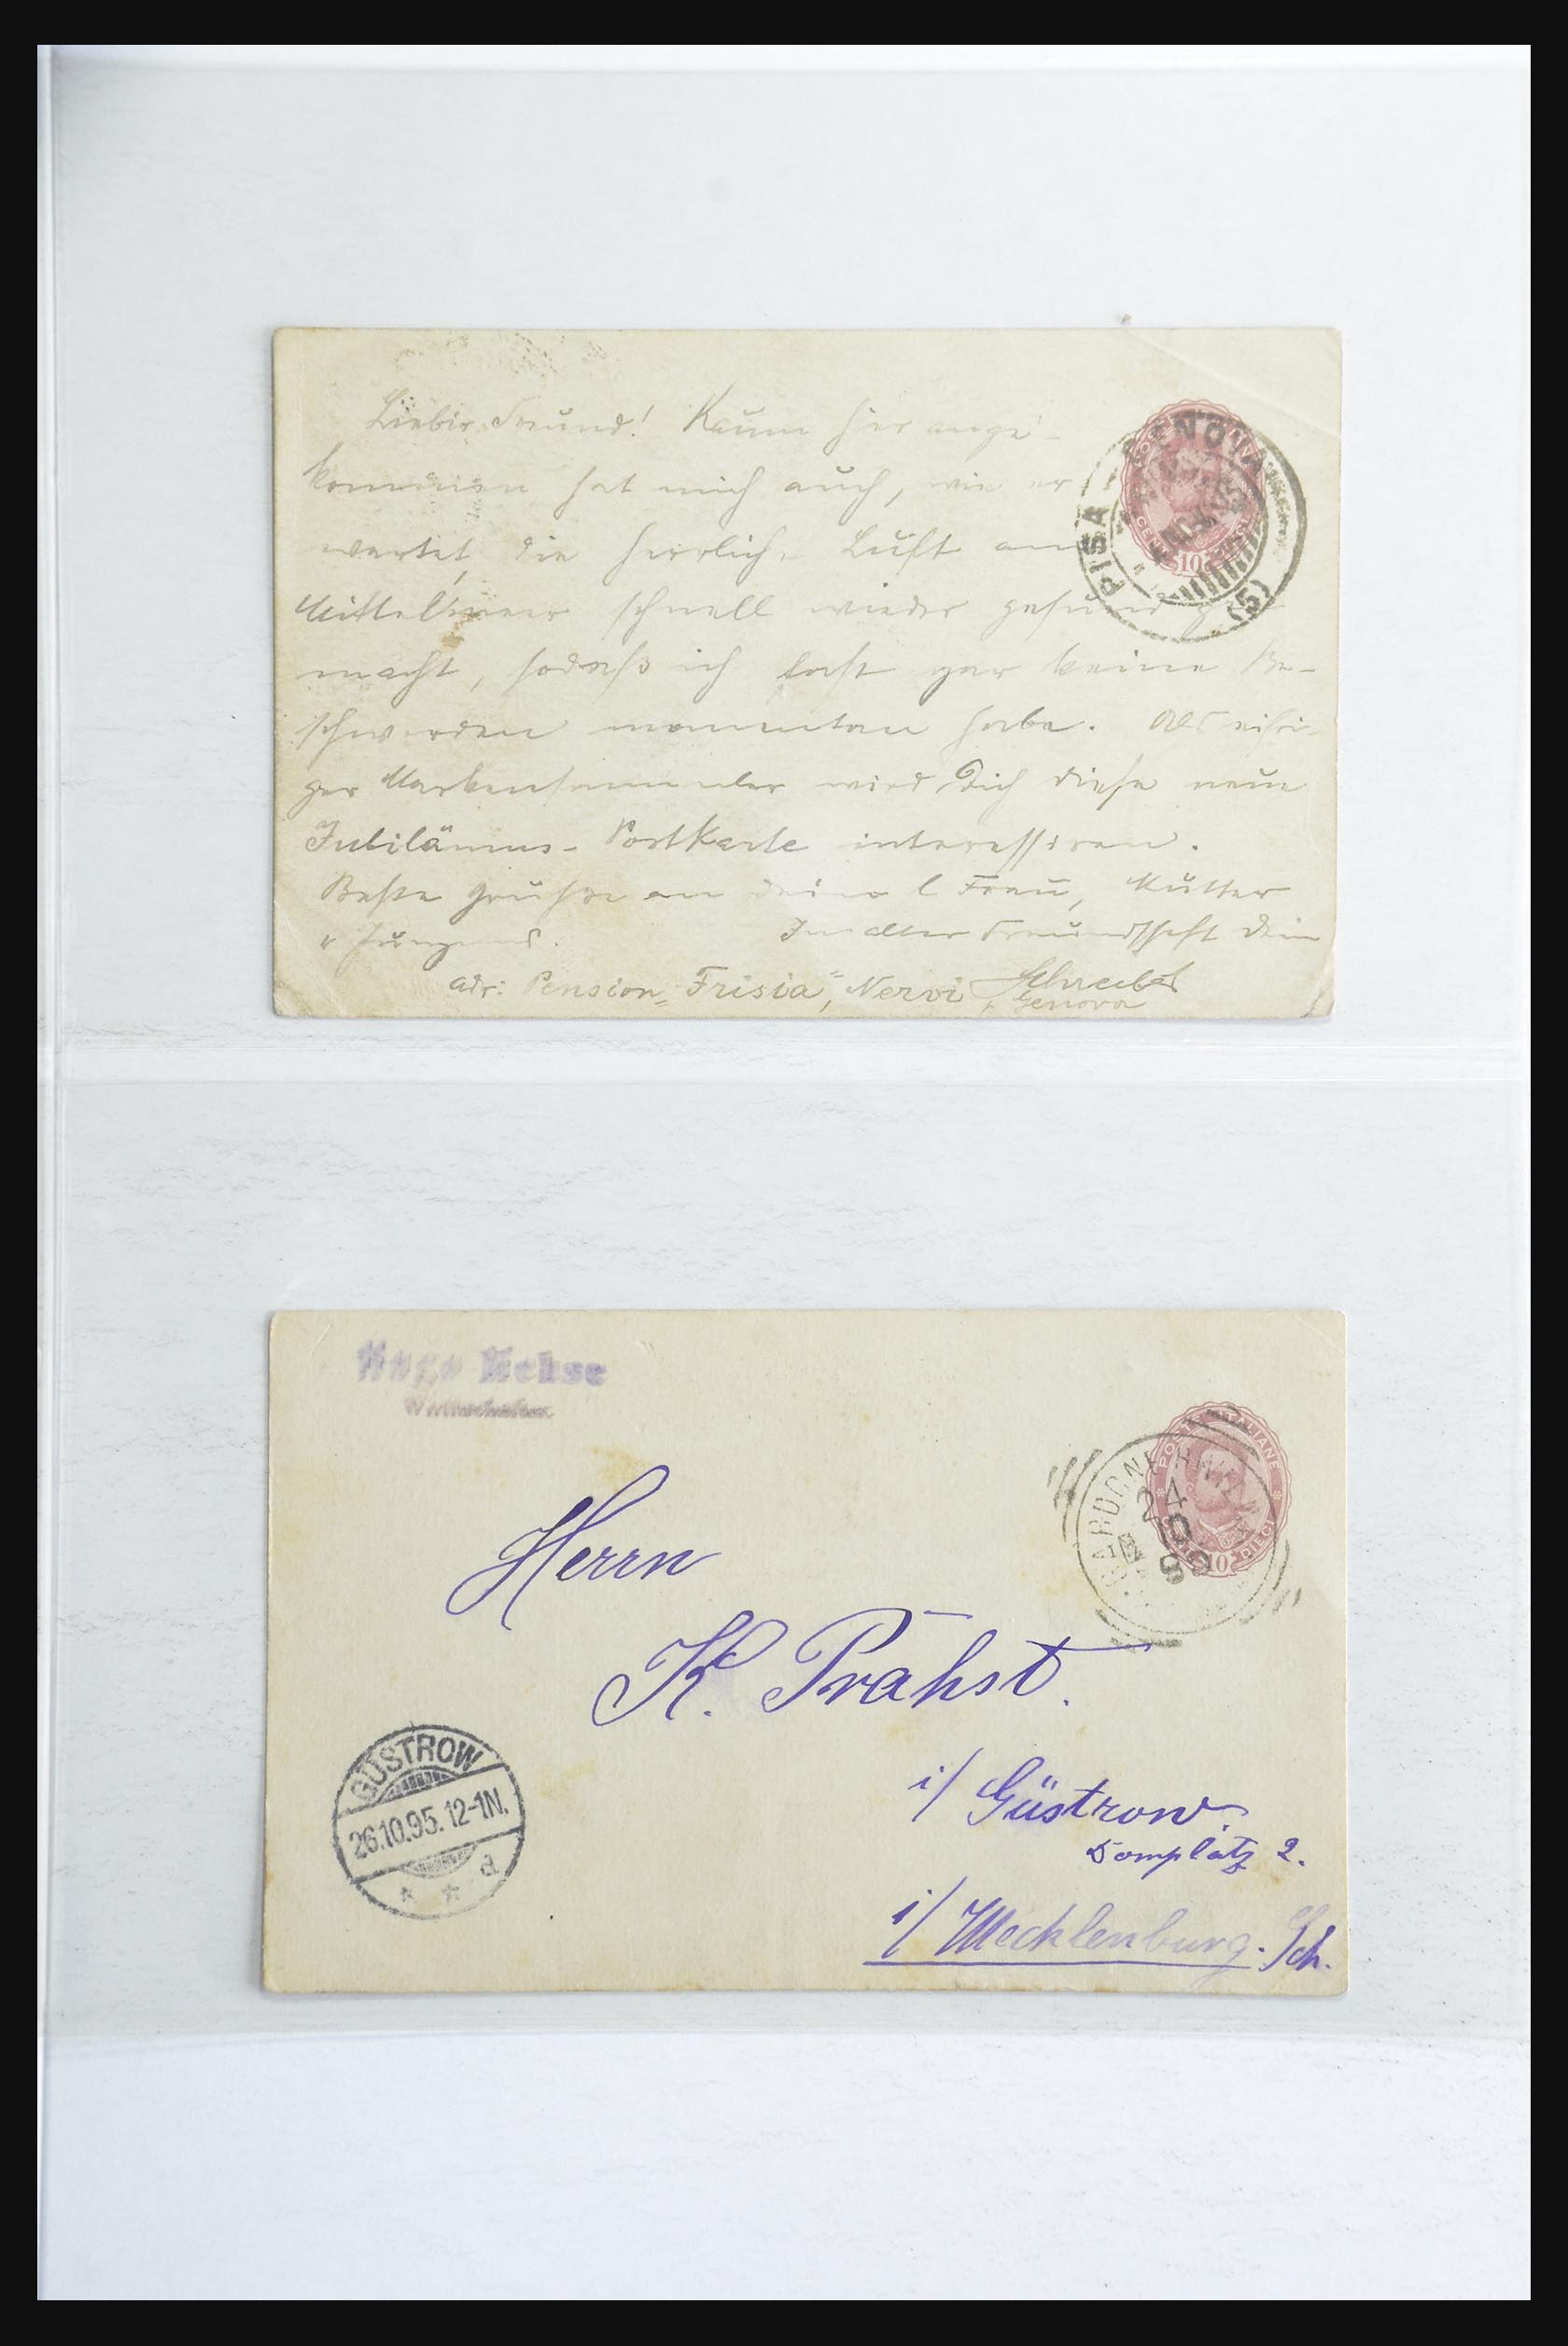 Lieber Freund! Kaum hier ange-
kommen hat mich auch, wie er
wartet, die herrliche Luft am
Mittelmeer schnell wieder gesund ge
macht, sodaß ich fast gar keine Be-
schwerden momentan habe. Als eifri-
ger Markensammler wird Dich diese neue
Jubiläums-Postkarte interessiren.
Beste Grüße an Deine l Frau, Mutter
u Jungens. In alter Freundschaft Dein
adr: Pension "Frisia", Nervi
Genova
PISA - GENOVA
(5)
10
Hugo Rehse
POSTE ITALIANE
24
10
10
Herrn
K. Prahst.
i/ Güstrow.
Domplatz 2.
i/ Mecklenburg. Sch.
GÜSTROW
26.10.95.12-1N.
d